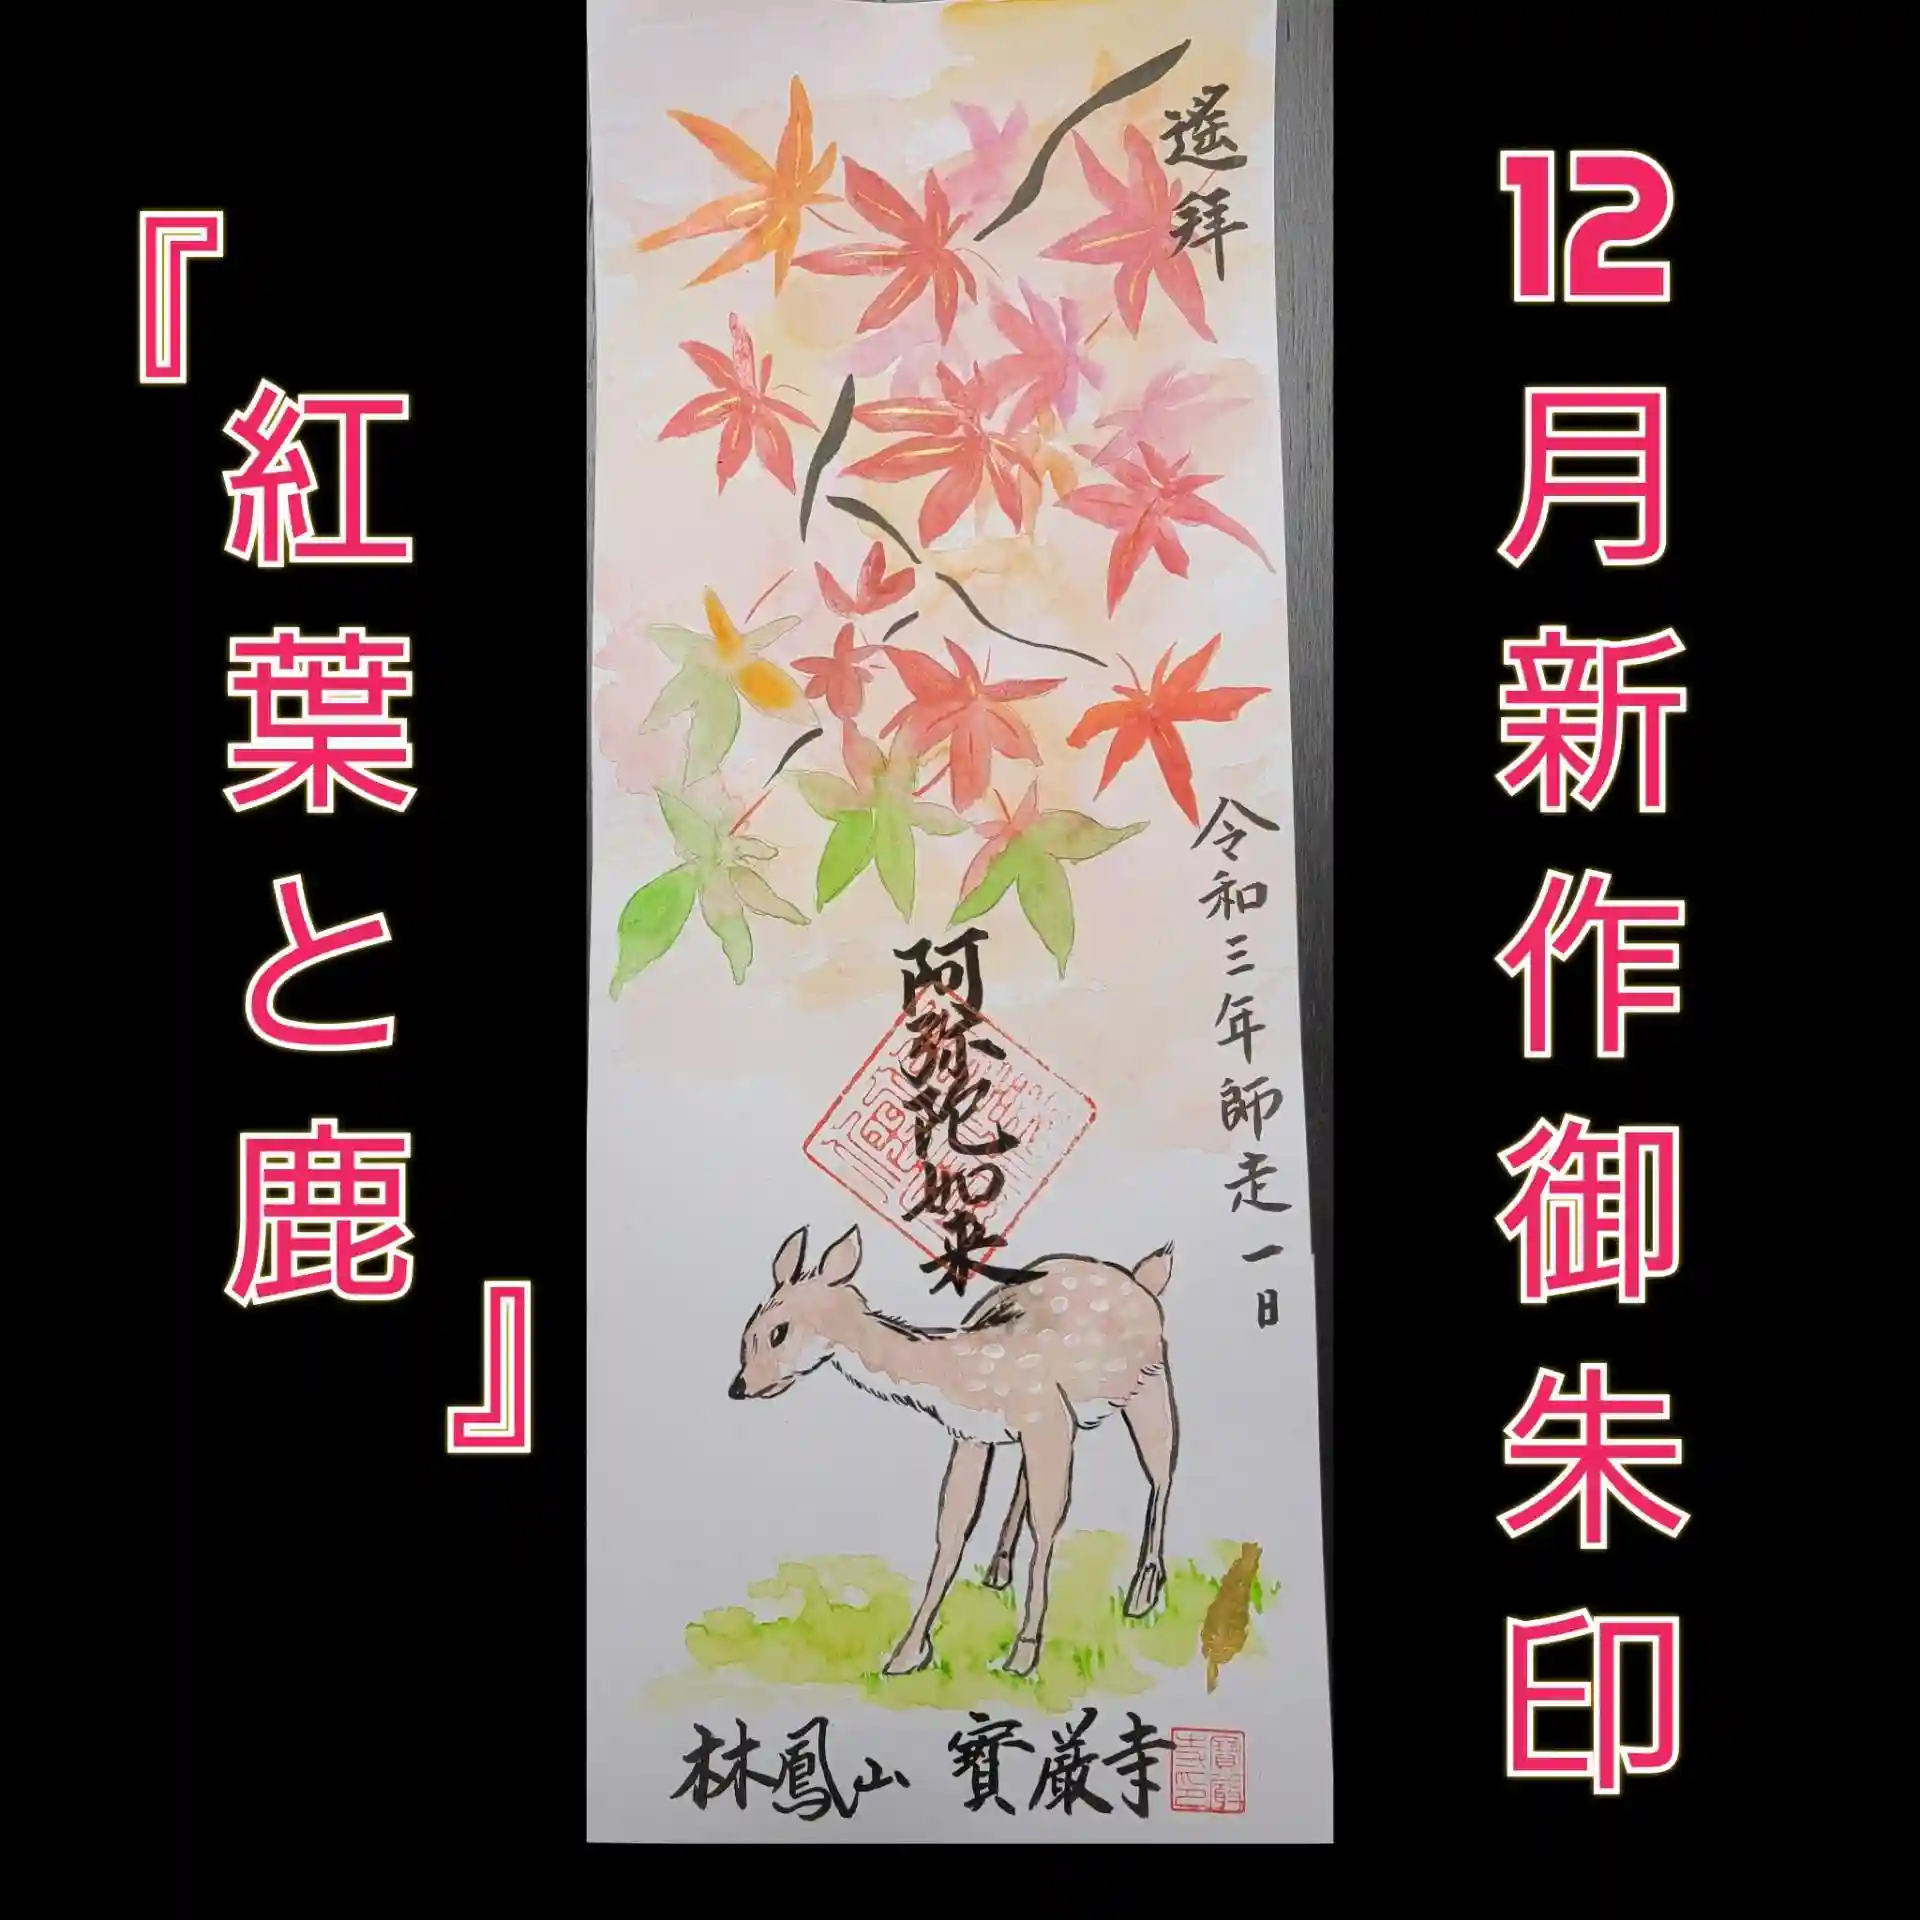 12月新作御朱印
『紅葉と鹿』
遙拜
令和三年師走一日
阿弥陀如来
林鳳山 寶厳寺